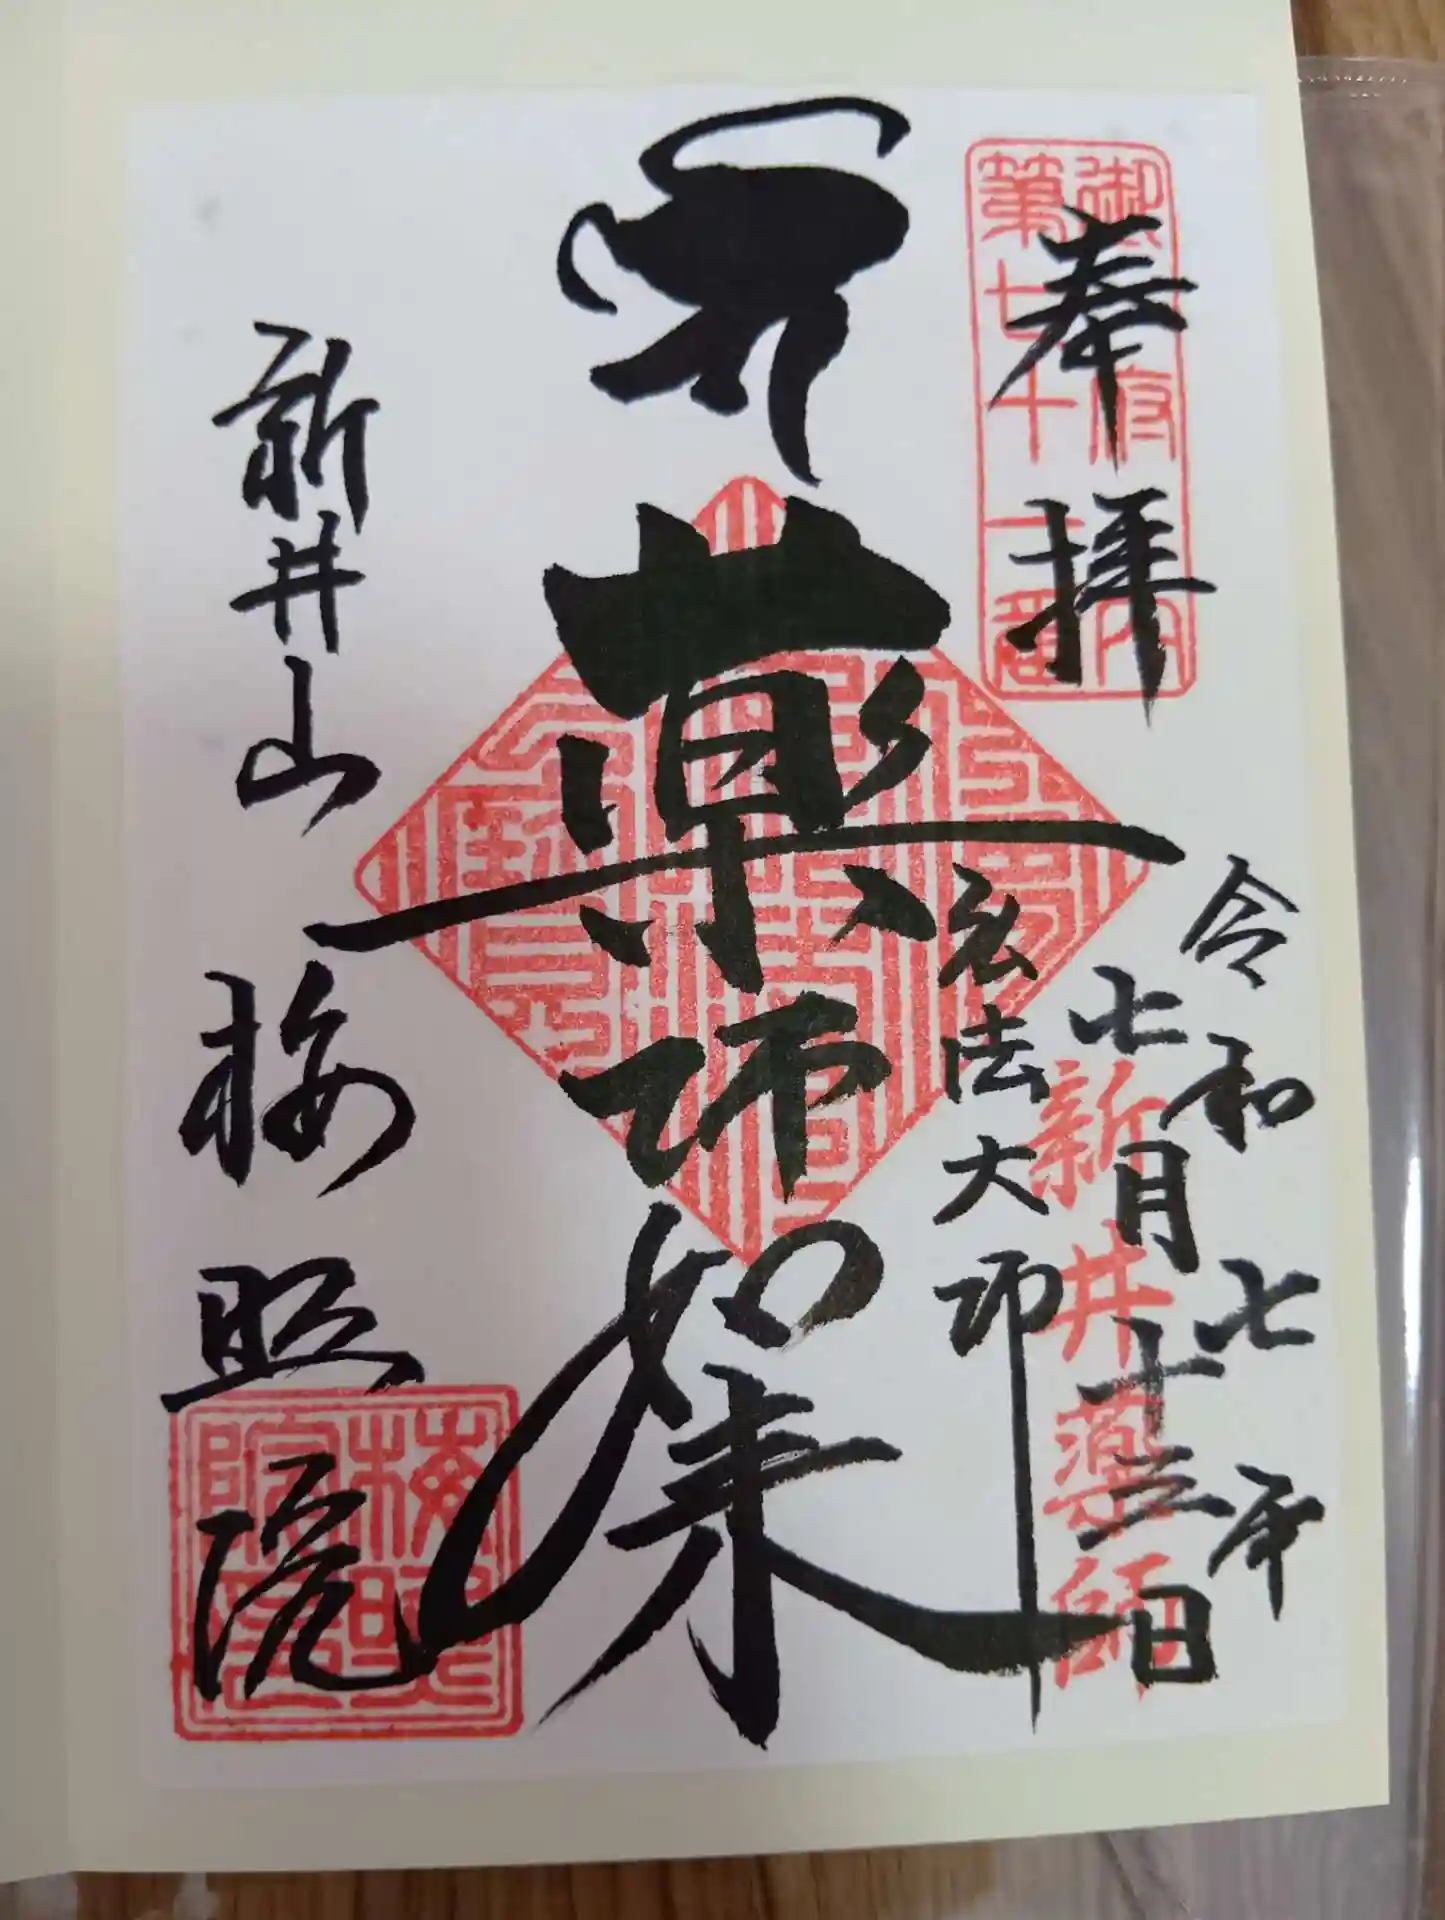 奉拝
御府内
第七十一番
令和七年
七月十三日
新井薬師
弘法大師
薬師如来
新井山
梅照院
梅照
院